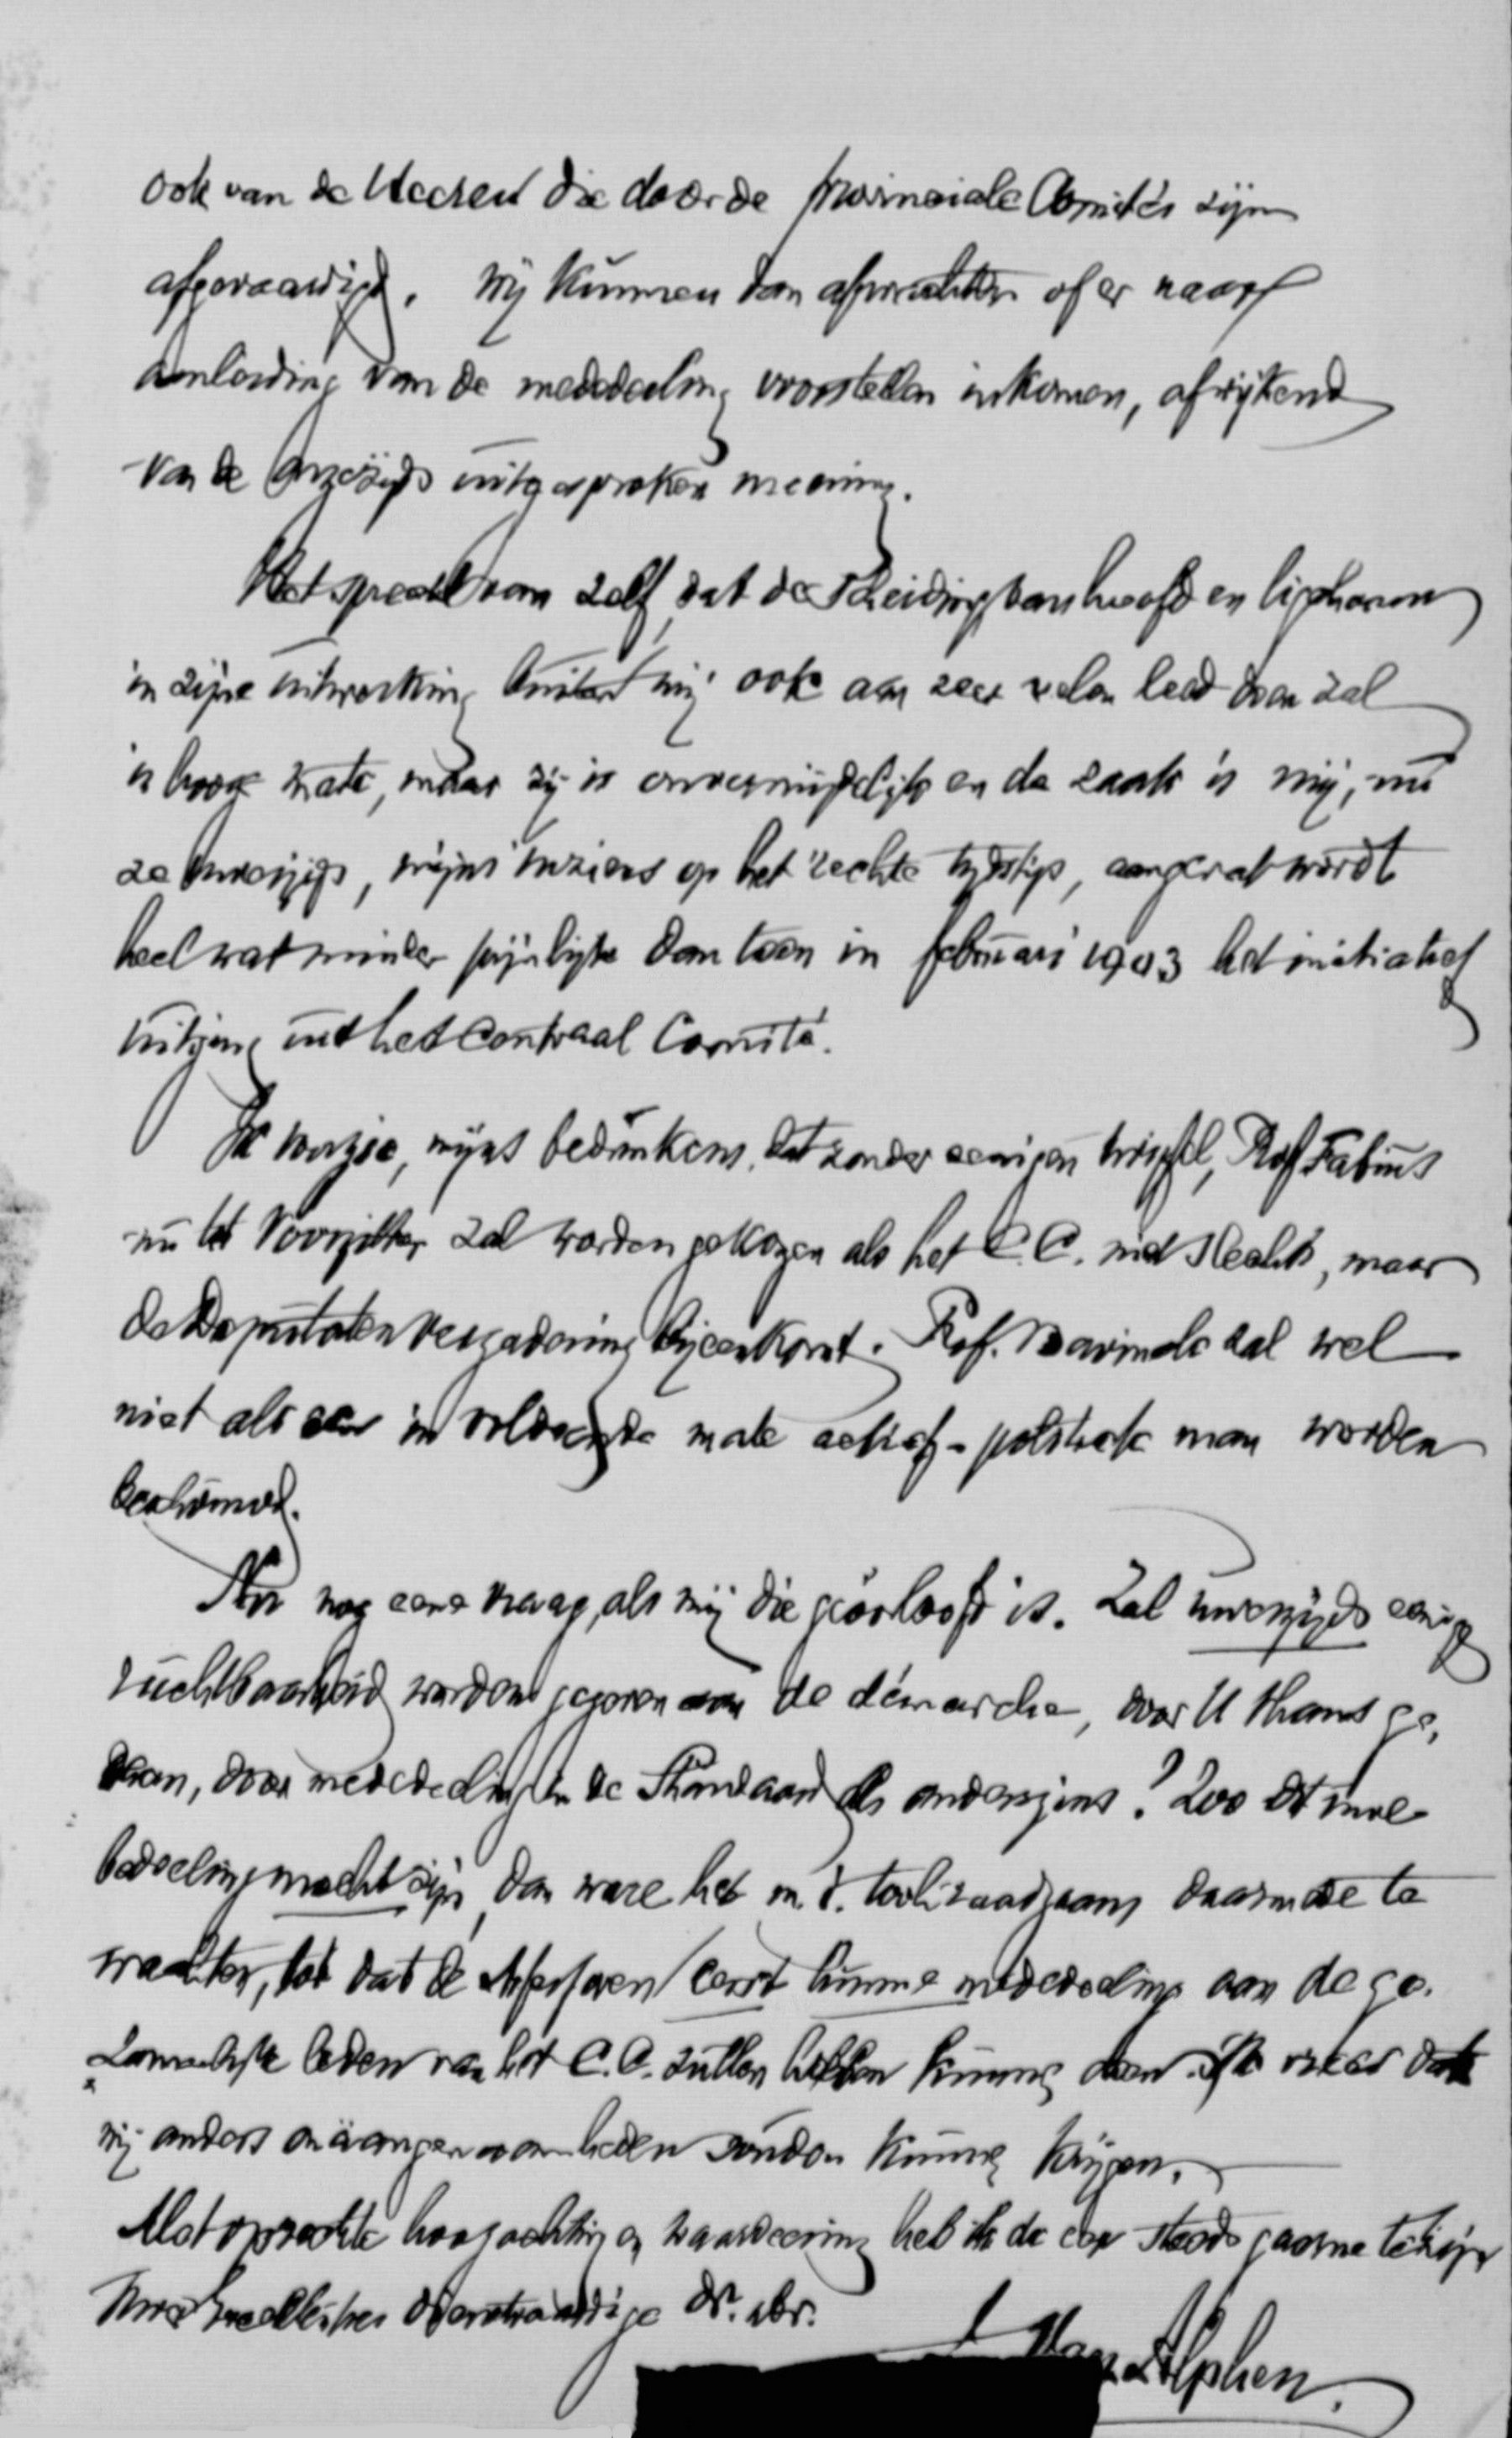 ook van de Heeren die door de provinciale Comité's zijn
afgevaardigd. Wij kunnen dan afwachten of er naar
aanleiding van de mededeeling voorstellen inkomen, afwijkend
van de onzerzijds uitgesproken meening.
Het spreekt van zelf, dat de scheiding van hoofd en lichaam
in zijne uitwerking buiten mij ook aan zeer velen leed doen zal
in hooge mate, maar zij is onvermijdelijk en de zaak is mij, nu
ze Uwerzijds, mijns inziens op het rechte tijdstip, aangevat wordt
heel wat minder pijnlijk dan toen in februari 1903 het initiatief
uitging uit het Centraal Comité.
Ik voorzie, mijns bedunkens, dat zonder eenigen twijfel, Prof. Fabius
nu tot Voorzitter zal worden gekozen als het C.C. niet slechts, maar
de Deputatenvergadering bijeenkomt. Prof. Bavinck zal wel
niet als een in voldoende mate actief-politiek man worden
beschouwd.
Nu nog eene vraag, als mij die geoorloofd is. Zal uwerzijds eenig
ruchtbaarheid worden gegeven aan de démarche, door U thans ge-
daan, door mededeeling in de Standaard als anderszins? Zoo dit uwe
bedoeling mocht zijn, dan ware het m.i. toch raadzaam daarmede te
wachten, tot dat de Assessoren eerst hunne mededeeling aan de ge-
zamenlijke leden van het C.C. zullen hebben kunnen doen. Ik vrees dat
wij anders onaangenaamheden zouden kunnen krijgen.
Met oprechte hoogachting en waardeering heb ik de eer steeds gaarne te zijn
Uwer Excellenties dienstwaardige dr. abr.
van Alphen.